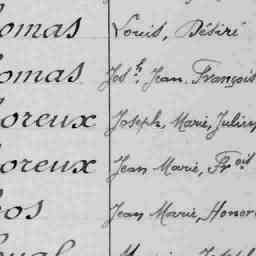 omas Louis, Désiré
omas Jos.h Jean François
oreux Joseph, Marie, Julien
oreux Jean Marie, Fr.ois
os Jean Marie, Honoré